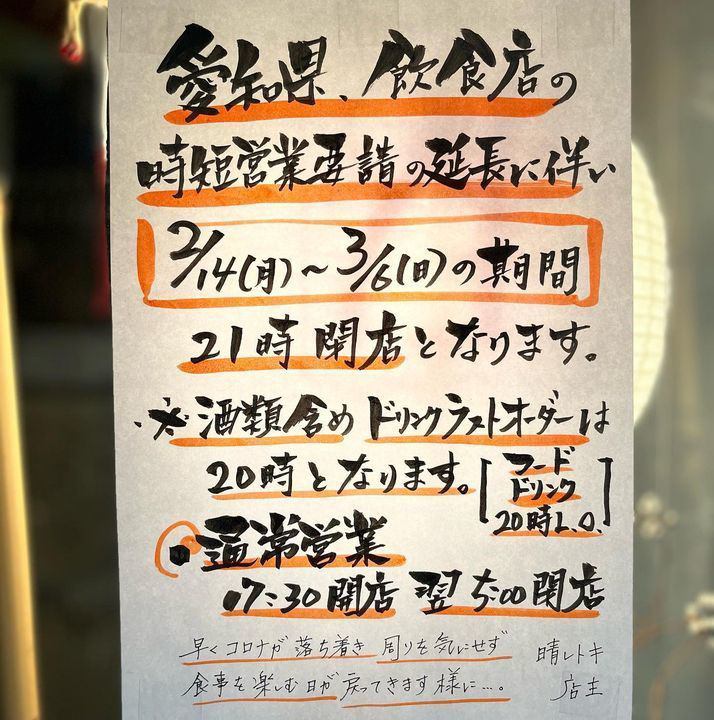 愛知県、飲食店の
時短営業要請の延長に伴い
2/14(月)～3/6(日)の期間
21時閉店となります。
※酒類含めドリンクラストオーダーは
20時となります。
フード
ドリンク
20時L.O.
・通常営業
17:30開店 翌5:00閉店
早くコロナが落ち着き 周りを気にせず
食事を楽しむ日が戻ってきます様に…。
晴レトキ
店主